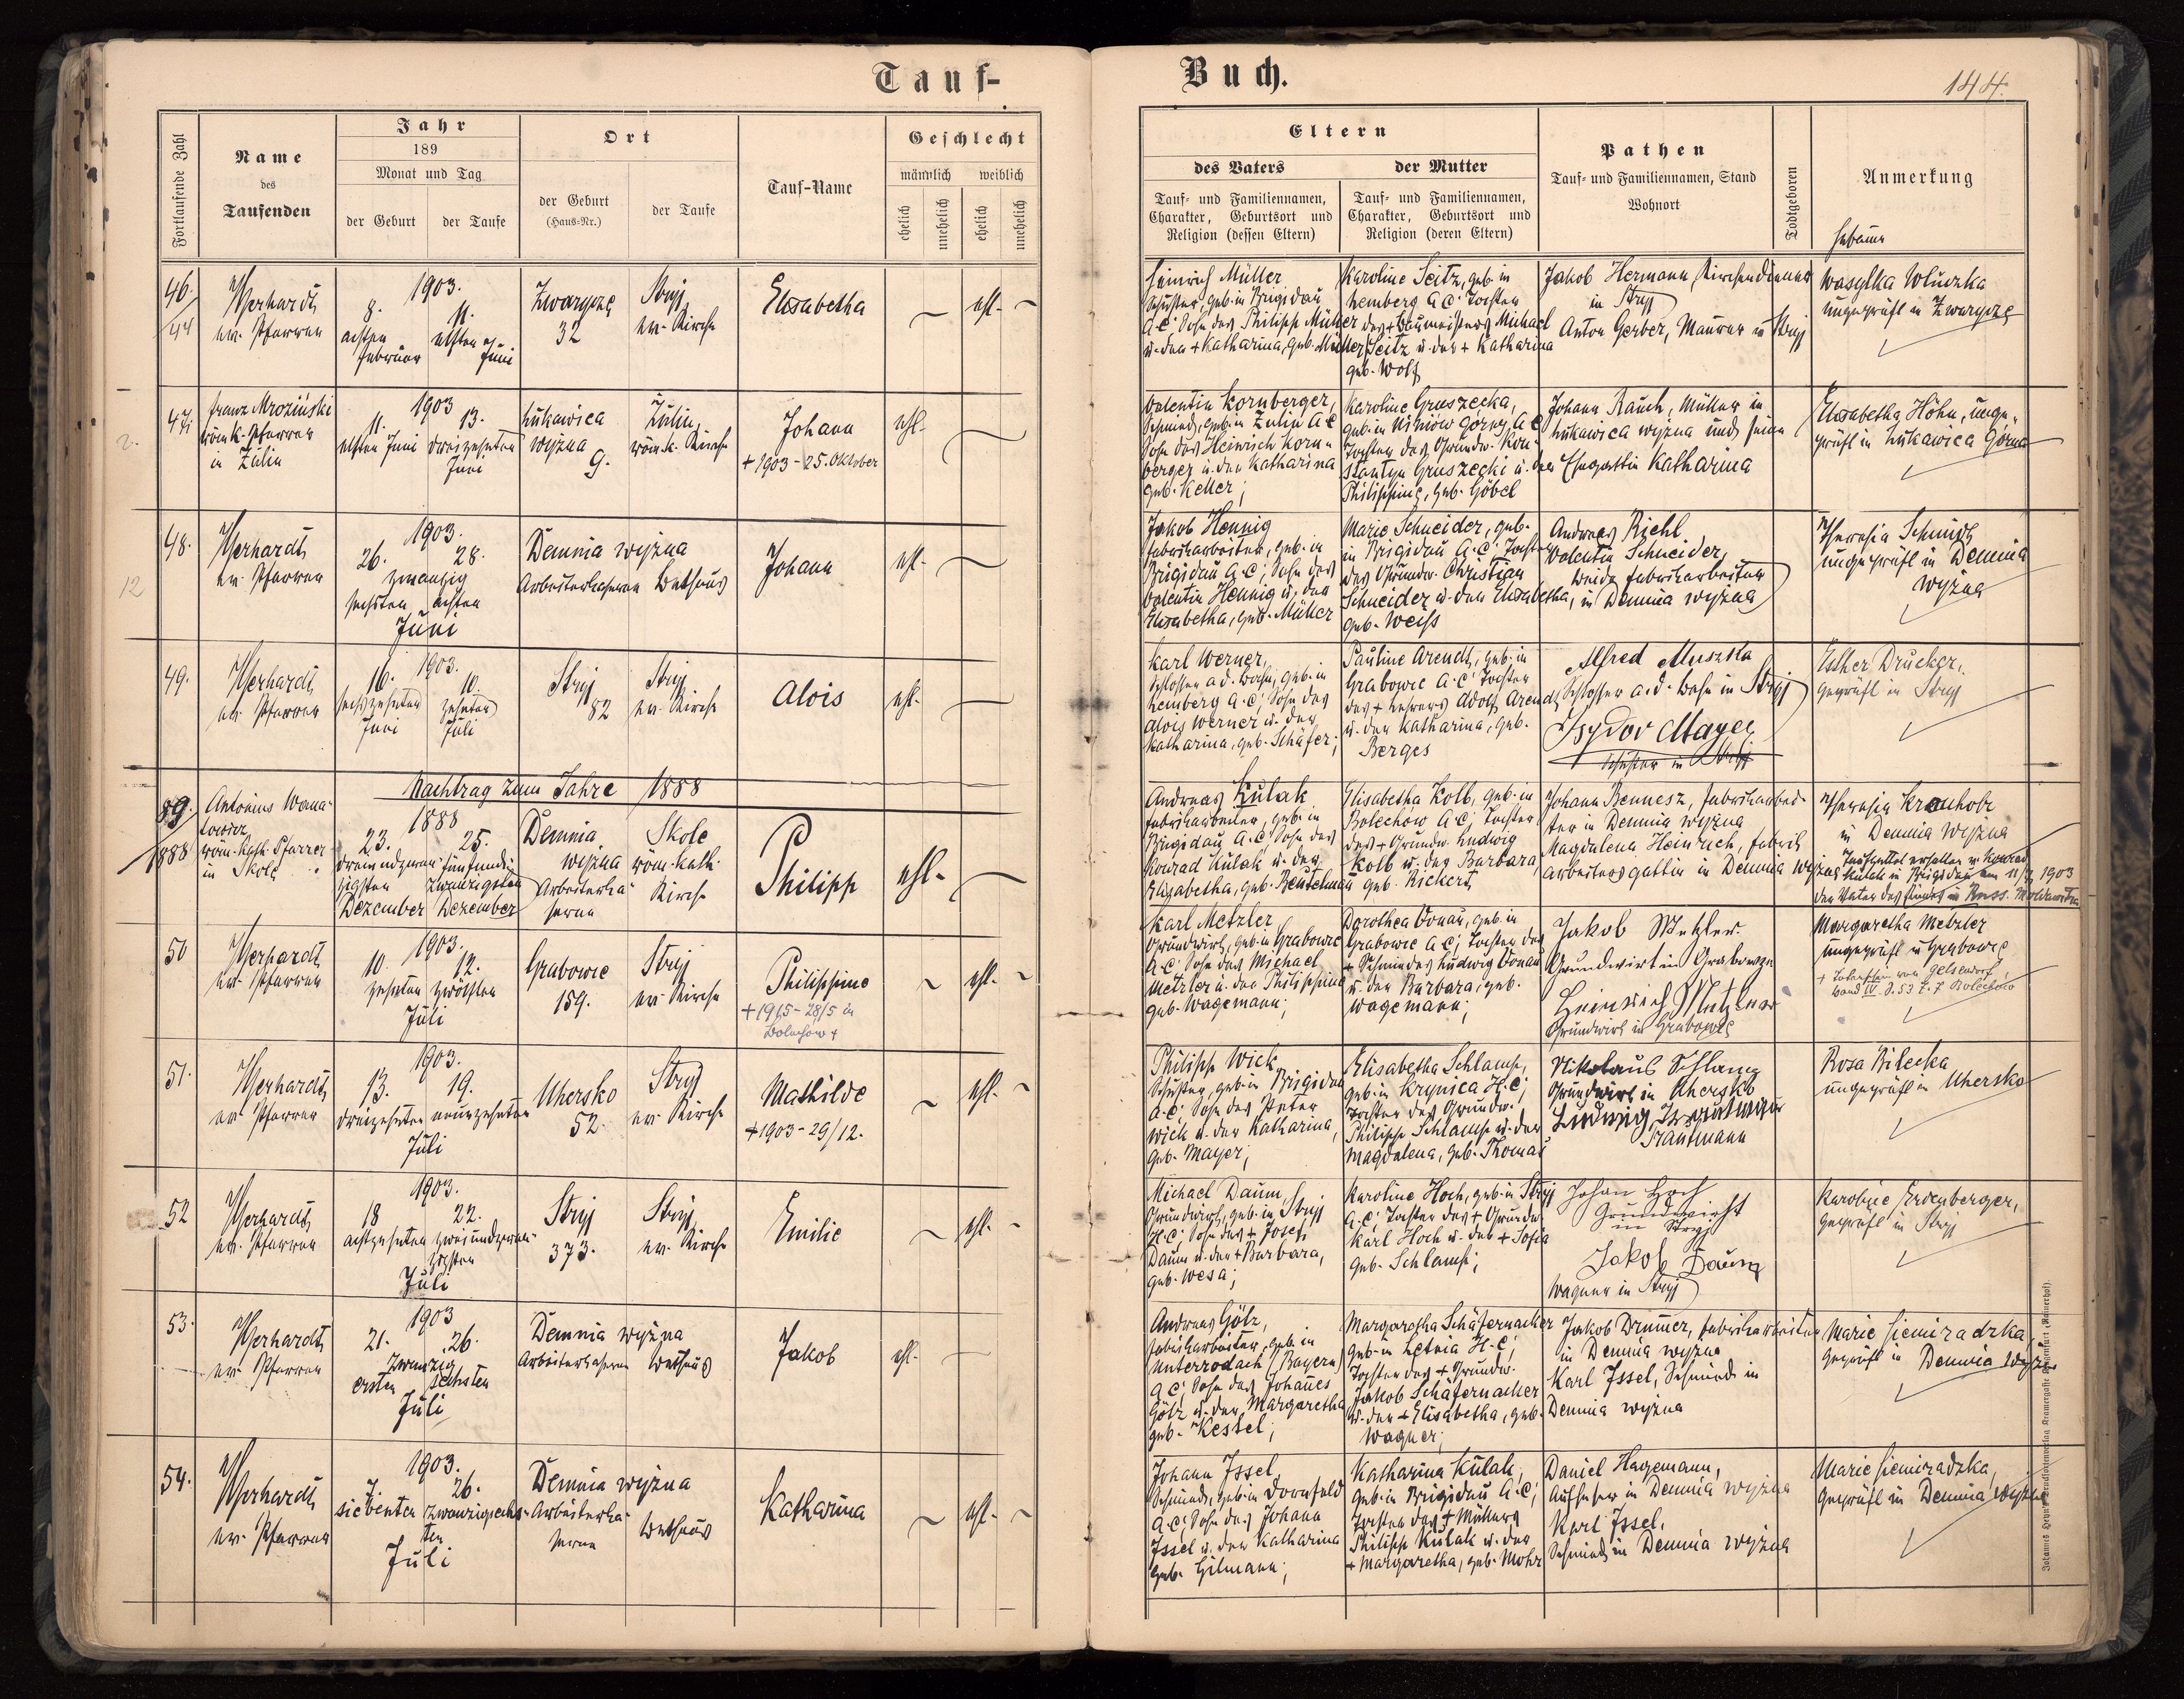 Tauf-
Buch.
144.
Fortlaufende Zahl
Name
des
Taufenden
Jahr
189
Monat und Tag
der Geburt
der Taufe
Ort
der Geburt
(Haus-Nr.)
der Taufe
Tauf-Name
Geschlecht
männlich
weiblich
ehelich
unehelich
ehelich
unehelich
Eltern
des Vaters
der Mutter
Tauf- und Familiennamen,
Charakter, Geburtsort und
Religion (dessen Eltern)
Tauf- und Familiennamen,
Charakter, Geburtsort und
Religion (deren Eltern)
Pathen
Tauf- und Familiennamen, Stand
Wohnort
Todtgeboren
Anmerkung
Hebamme
46.
44
ev. Pfarrer
1903.
8.
11.
achten
elften
Februar
Juni
32
Stryj
ev. Kirche
Elisabetha
ehl.
Heinrich Müller
Schuster, geb. in Brigidau
A.C. Sohn des Philipp Müller
u. der + Katharina, geb. Müller
Karoline Seitz, geb. in
Lemberg A.C. Tochter
des + Baumeisters Michael
Seitz u. der + Katharina
geb. Wolf
Jakob Hermann, Kirchendiener
in Stryj
Anton Gerber, Maurer in Stryj
Wasylka Woluczka
ungeprüft in
47.
Franz Mroziński
röm. k. Pfarrer
in Zulin
1903
11.
13.
elften Juni
dreizehnten
Juni
Lukawica
wyżna
9.
Zulin,
röm. k. Kirche
Johann
+ 1903 - 25. Oktober
ehl.
Valentin Kornberger,
Schmied, geb. in Zulin A.C.
Sohn des Heinrich Korn-
berger u. der Katharina
geb. Keller;
Karoline Gruszecka,
geb. in Wiśniów górny A.C.
Tochter des Grundw. Kon-
stantyn Gruszecki u. der
Philippine, geb. Göbel
Johann Rauch, Müller in
Lukawica wyżna und seine
Ehegattin Katharina
Elisabetha Höhn, unge-
prüft in Lukawica Górna
12
48.
ev. Pfarrer
1903.
26.
28.
zwanzig
sechsten
achten
Juni
Demnia wyżna
Arbeiterkaserne
Bethaus
Johann
ehl.
Jakob Hennig
Fabriksarbeiter, geb. in
Brigidau A.C; Sohn des
Valentin Hennig u. der
Elisabetha, geb. Müller
Marie Schneider, geb.
in Brigidau A.C; Tochter
des Grundw. Christian
Schneider u. der Elisabetha,
geb. Weiss
Andreas Riehl
Valentin Schneider,
beide Fabriksarbeiter
in Demnia wyżna
Theresia Schmidt
ungeprüft in Demnia
wyżna
49.
ev. Pfarrer
1903.
16.
10.
sechszehnten
zehnten
Juni
Juli
Stryj
82
Stryj
ev. Kirche
Alois
ehl.
Karl Werner,
Schlosser a.d. Bahn, geb. in
Lemberg A.C; Sohn des
Alois Werner u. der
Katharina, geb. Schäfer;
Pauline Arendt, geb. in
Grabowce A.C; Tochter
des + Lehrers Adolf Arendt
u. der Katharina, geb.
Berges
Alfred Muszka
Schlosser a.d. Bahn in Stryj
Isydor Mayer
Schuster in Stryj
Esther Drucker,
geprüft in Stryj
Nachtrag zum Jahre 1888
89.
1888
Antonius
röm. kath. Pfarrer
in Skole
1888
23.
25.
dreiundzwan-
fünfundz-
zigsten
zwanzigsten
Dezember
Dezember
Demnia
wyżna
Arbeiterka-
serne
Skole
röm. kath.
Kirche
Philipp
ehl.
Andreas Kulak
Fabriksarbeiter, geb. in
Brigidau A.C; Sohn des
Konrad Kulak u. der
Elisabetha, geb.
Elisabetha Kolb, geb. in
Bolechow A.C; Tochter
des + Grundw. Ludwig
Kolb u. der Barbara,
geb. Rickert
Johann Bennesz, Fabriksarbei-
ter in Demnia wyżna
Magdalena Heinrich, Fabriks
arbeitersgattin in Demnia wyżna
Theresia Krauholz
in Demnia wyżna
Kulak in Brigidau am 11/7 1903
50
ev. Pfarrer
1903.
10.
12.
zehnten
zwölften
Juli
Grabowce
159.
Stryj
ev. Kirche
Philippine
+ 1915 - 28/5 in
Bolechow +
ehl.
Karl Metzler
Grundwirt, geb. in Grabowce
A.C; Sohn des Michael
Metzler u. der Philippine
geb. Wagemann;
Dorothea Donau, geb. in
Grabowce A.C; Tochter des
+ Schmiedes Ludwig Donau
u. der Barbara, geb.
Wagemann;
Jakob Metzler
Grundwirt in Grabowce
Heinrich Metzler
Grundwirt in Grabowce
Margaretha Metzler
ungeprüft in Grabowce
51.
ev. Pfarrer
1903.
13.
19.
dreizehnten
neunzehnten
Juli
Uhersko
52.
Stryj
ev. Kirche
Mathilde
+ 1903 - 29/12.
ehl.
Philipp Wick
Schuster, geb. in Brigidau
A.C; Sohn des Peter
Wick u. der Katharina,
geb. Mayer;
Elisabetha Schlamp,
geb. in Krynica H.C;
Tochter des Grundw.
Philipp Schlamp u. der
Magdalena, geb. Thomas
Nikolaus Schlamp
Grundwirt in Uhersko
Ludwig
Trautmann
Rosa Bilecka
ungeprüft in Uhersko
52
ev. Pfarrer
1903.
18
22.
achtzehnten
zweiundzwan-
zigsten
Juli
Stryj
373.
Stryj
ev. Kirche
Emilie
ehl.
Michael Daum,
Grundwirt, geb. in Stryj
H.C; Sohn des + Josef
Daum u. der + Barbara,
geb. Wesa;
Karoline Hoch, geb. in Stryj
A.C; Tochter des + Grundw.
Karl Hoch u. der + Sofia
geb. Schlamp;
Johan Hoch
Grundwirt
in Stryj
Jakob Daum
Wagner in Stryj
Karoline Erdenberger,
geprüft in Stryj
53.
ev. Pfarrer
1903
21.
26.
zwanzig
ersten
sechsten
Juli
Demnia wyżna
Arbeiterkaserne
Bethaus
Jakob
ehl.
Andreas Götz,
Fabriksarbeiter, geb. in
Unterrodach (Bayern)
A.C; Sohn des Johannes
Götz u. der Margaretha
geb. Kessel;
Margaretha Schäfernacker
geb. in Letnia H.C;
Tochter des + Grundw.
Jakob Schäfernacker
u. der + Elisabetha, geb.
Wagner;
Jakob Drummer, Fabriksarbeiter
in Demnia wyżna
Karl Issel, Schmied in
Demnia wyżna
Marie Siemiradzka,
geprüft in Demnia wyżna
54.
ev. Pfarrer
1903.
7.
26.
siebenten
zwanzigsechs-
ten
Juli
Demnia wyżna
Arbeiterka-
serne
Bethaus
Katharina
ehl.
Johann Issel
Schmied, geb. in Dornfeld
A.C; Sohn des Johann
Issel u. der Katharina
geb. Gilmann;
Katharina Kulak,
geb. in Brigidau A.C;
Tochter des + Müllers
Philipp Kulak u. der
+ Margaretha, geb. Mohr
Daniel Hagemann,
Aufseher in Demnia wyżna
Karl Issel,
Schmied in Demnia wyżna
Marie Siemiradzka,
geprüft in Demnia wyżna